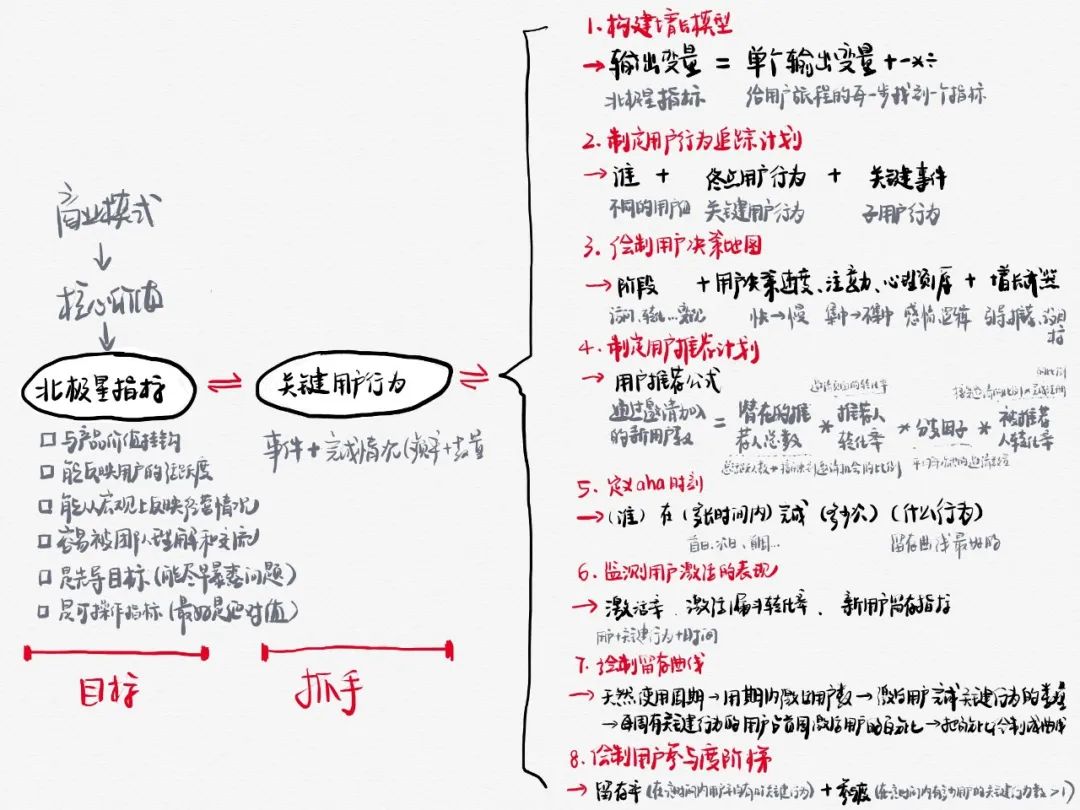 商业模式
核心价值
北极星指标
关键用户行为
与产品价值挂钩
能反映用户的活跃度
能从宏观上反映经营情况
容易被团队理解和交流
是先导目标（能尽早暴露问题）
是可操作指标（最好是绝对值）
目标
事件+完成情况（频率+数量
抓手
1.构建增长模型
→输出变量 = 单个输出变量 +-×÷
北极星指标 给用户旅程的每一步找到一个指标
2.制定用户行为追踪计划
→谁 + 终点用户行为 + 关键事件
不同的用户组 关键用户行为 子用户行为
3.绘制用户决策地图
→阶段 +用户决策速度、注意力、心理顺序 + 增长
访问、转化 快→慢 集中→不集中 感情 逻辑
4.制定用户推荐计划
→用户推荐公式
通过邀请加入的新用户数 = 潜在的推荐人总数 * 推荐人转化率 * 分支因子 * 被推荐人转化率
5.定义aha时刻
→（谁）在（多长时间内）完成（多少次）（什么行为）
首日、次日、首周… 留存曲线最好的
6.监测用户激活的表现
→激活率、激活漏斗转化率、新用户留存指标
用户+关键行为+时间
7.绘制留存曲线
→天然使用周期→周期内激活用户数→激活用户完成关键行为的数量
→每周有关键行为的用户占首周激活用户的百分比→把百分比绘制成曲线
8.绘制用户参与度阶梯
→留存率（在 时间内用户 有关键行为）+